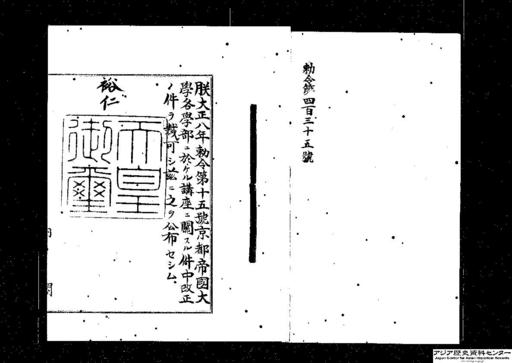 勅令第四百三十五號
朕大正八年勅令第十五號京都帝國大
學各學部ニ於ケル講座ニ關スル件中改正
ノ件ヲ裁可シ茲ニ之ヲ公布セシム
裕仁
天皇
御璽
内閣
アジア歴史資料センター
Japan Center for Asian Historical Records